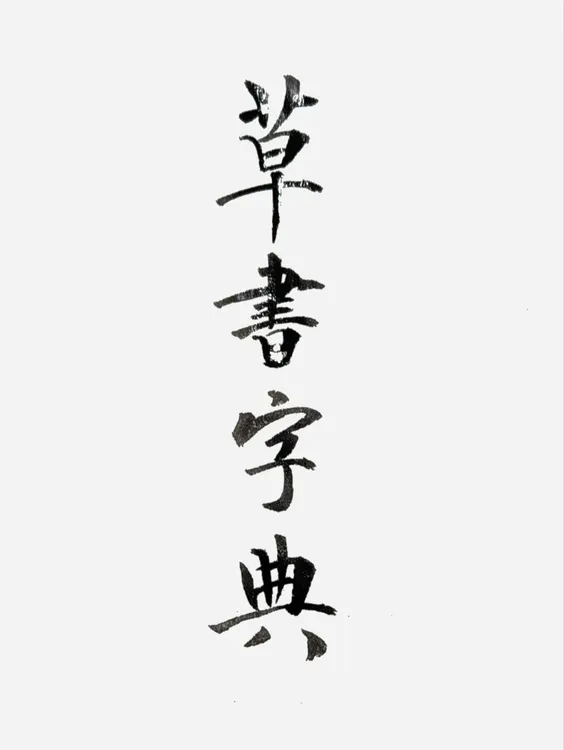 草書字典